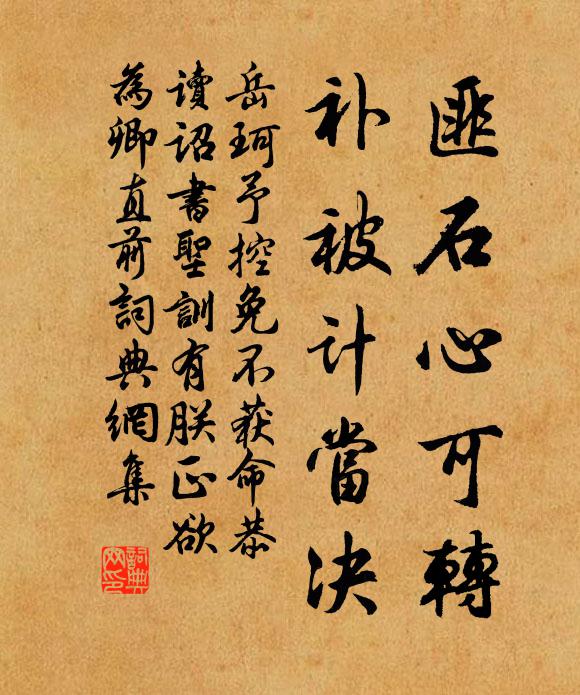 匪石心可轉
补被计當决
岳珂予控免不获命恭
讀詔書聖訓有朕正欲
為卿直前詞典網集
詞典网印